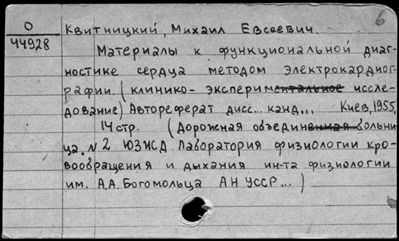 6
О
44928
Квитницкий, Михаил Евсеевич.
Материалы к функциональной диаг-
ностике сердца методом электрокардиог-
рафии. (клинико- экспериментальное иссле-
дование) Автореферат дисс... канд.,,. Киев, 1955,
14 стр. (Дорожная объединенная больни-
ца. N 2 ЮЗЖД Лаборатория физиологии кро-
вообращения и дыхания ин-та физиологии
им. А.А. Богомольца АН УССР...)